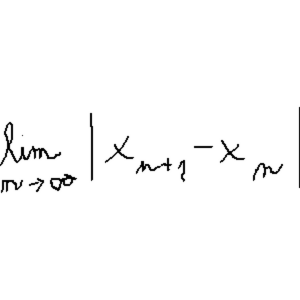 lim_{n→∞} |x_{n+1} - x_n|